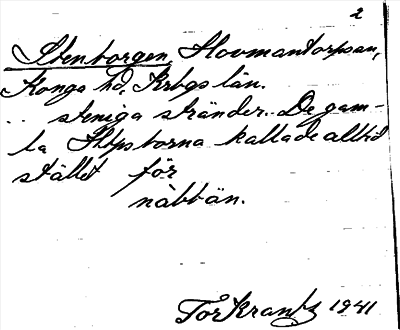 2
Stenborgen, Hovmantorpsån,
Konga hd, Krbgs län.
.. steniga stränder. De gam-
la Htpsborna kallade alltid
stället för
nàbbän.
Tor Krantz 1941